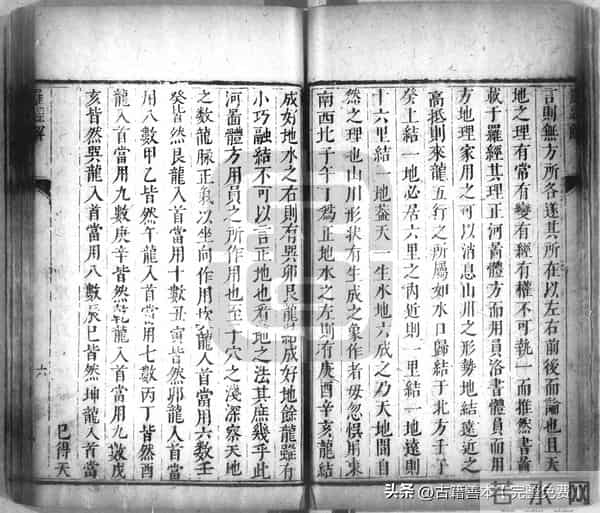 言則無方所各逐其所在以左右前後而論也且天
地之理有常有變有經有權不可執一而推然書啚
載于羅經其理正河啚體方而用員洛書體員而用
方地理家用之可以消息山川之形勢地結遠近之
高抵則來龍五行之所屬如水口歸結于北方壬子
癸上結一地必居六里之內近則一里結一地遠則
十六里結一地葢天一生水地六成之乃天地間自
然之理也山川形狀有生成之象作者毋忽惧用東
南西北子午丁為正地水之左則有庚酉辛亥龍結
成好地水之右則有巽卯艮龍結成好地餘龍雖有
小巧融結不可以言正地也看地之法其庶幾乎此
河啚體方用員之所作用也至于穴之淺深察天地
之數龍脈正氣以坐向作用坎龍入首當用六數壬
癸皆然艮龍入首當用十數丑寅皆然卯龍入首當
用八數甲乙皆然午龍入首當用七數丙丁皆然酉
龍入首當用九數庚辛皆然乾龍入首當用九數戌
亥皆然巽龍入首當用八數辰巳皆然坤龍入首當
巳得天
羅經解
六
头条 @古籍善本王完整免费